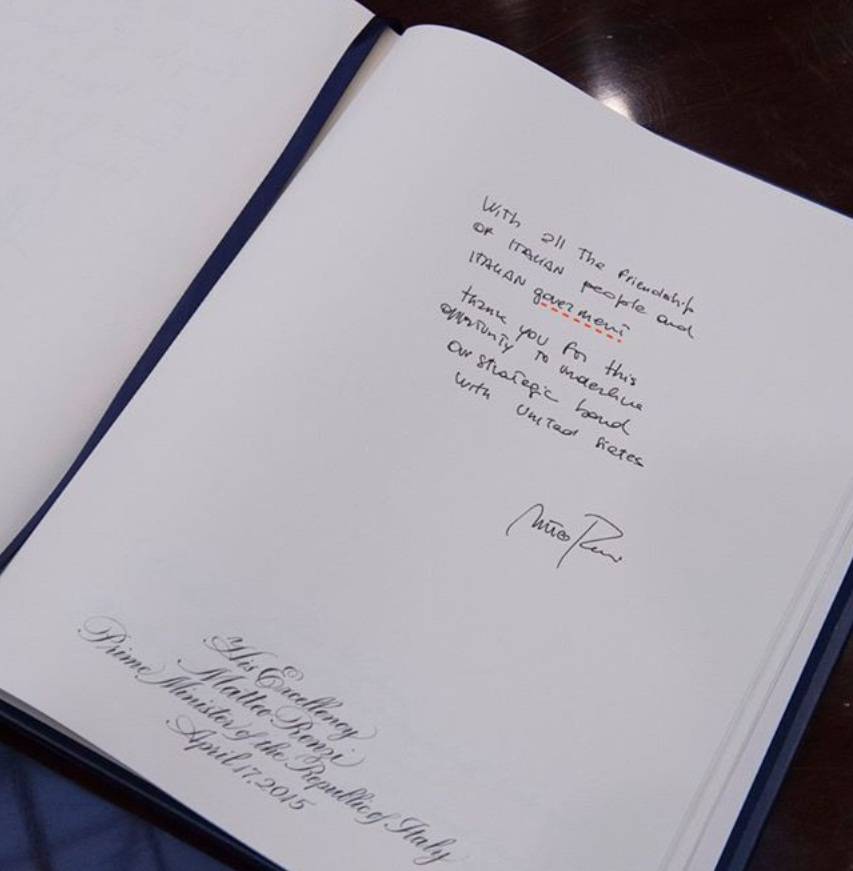 With all The friendship
OF ITALIAN people and
ITALIAN goverment
thank you for this
opportunity to underline
our strategic bond
with United States
Matteo Renzi
His Excellency
Matteo Renzi
Prime Minister of the Republic of Italy
April 17, 2015